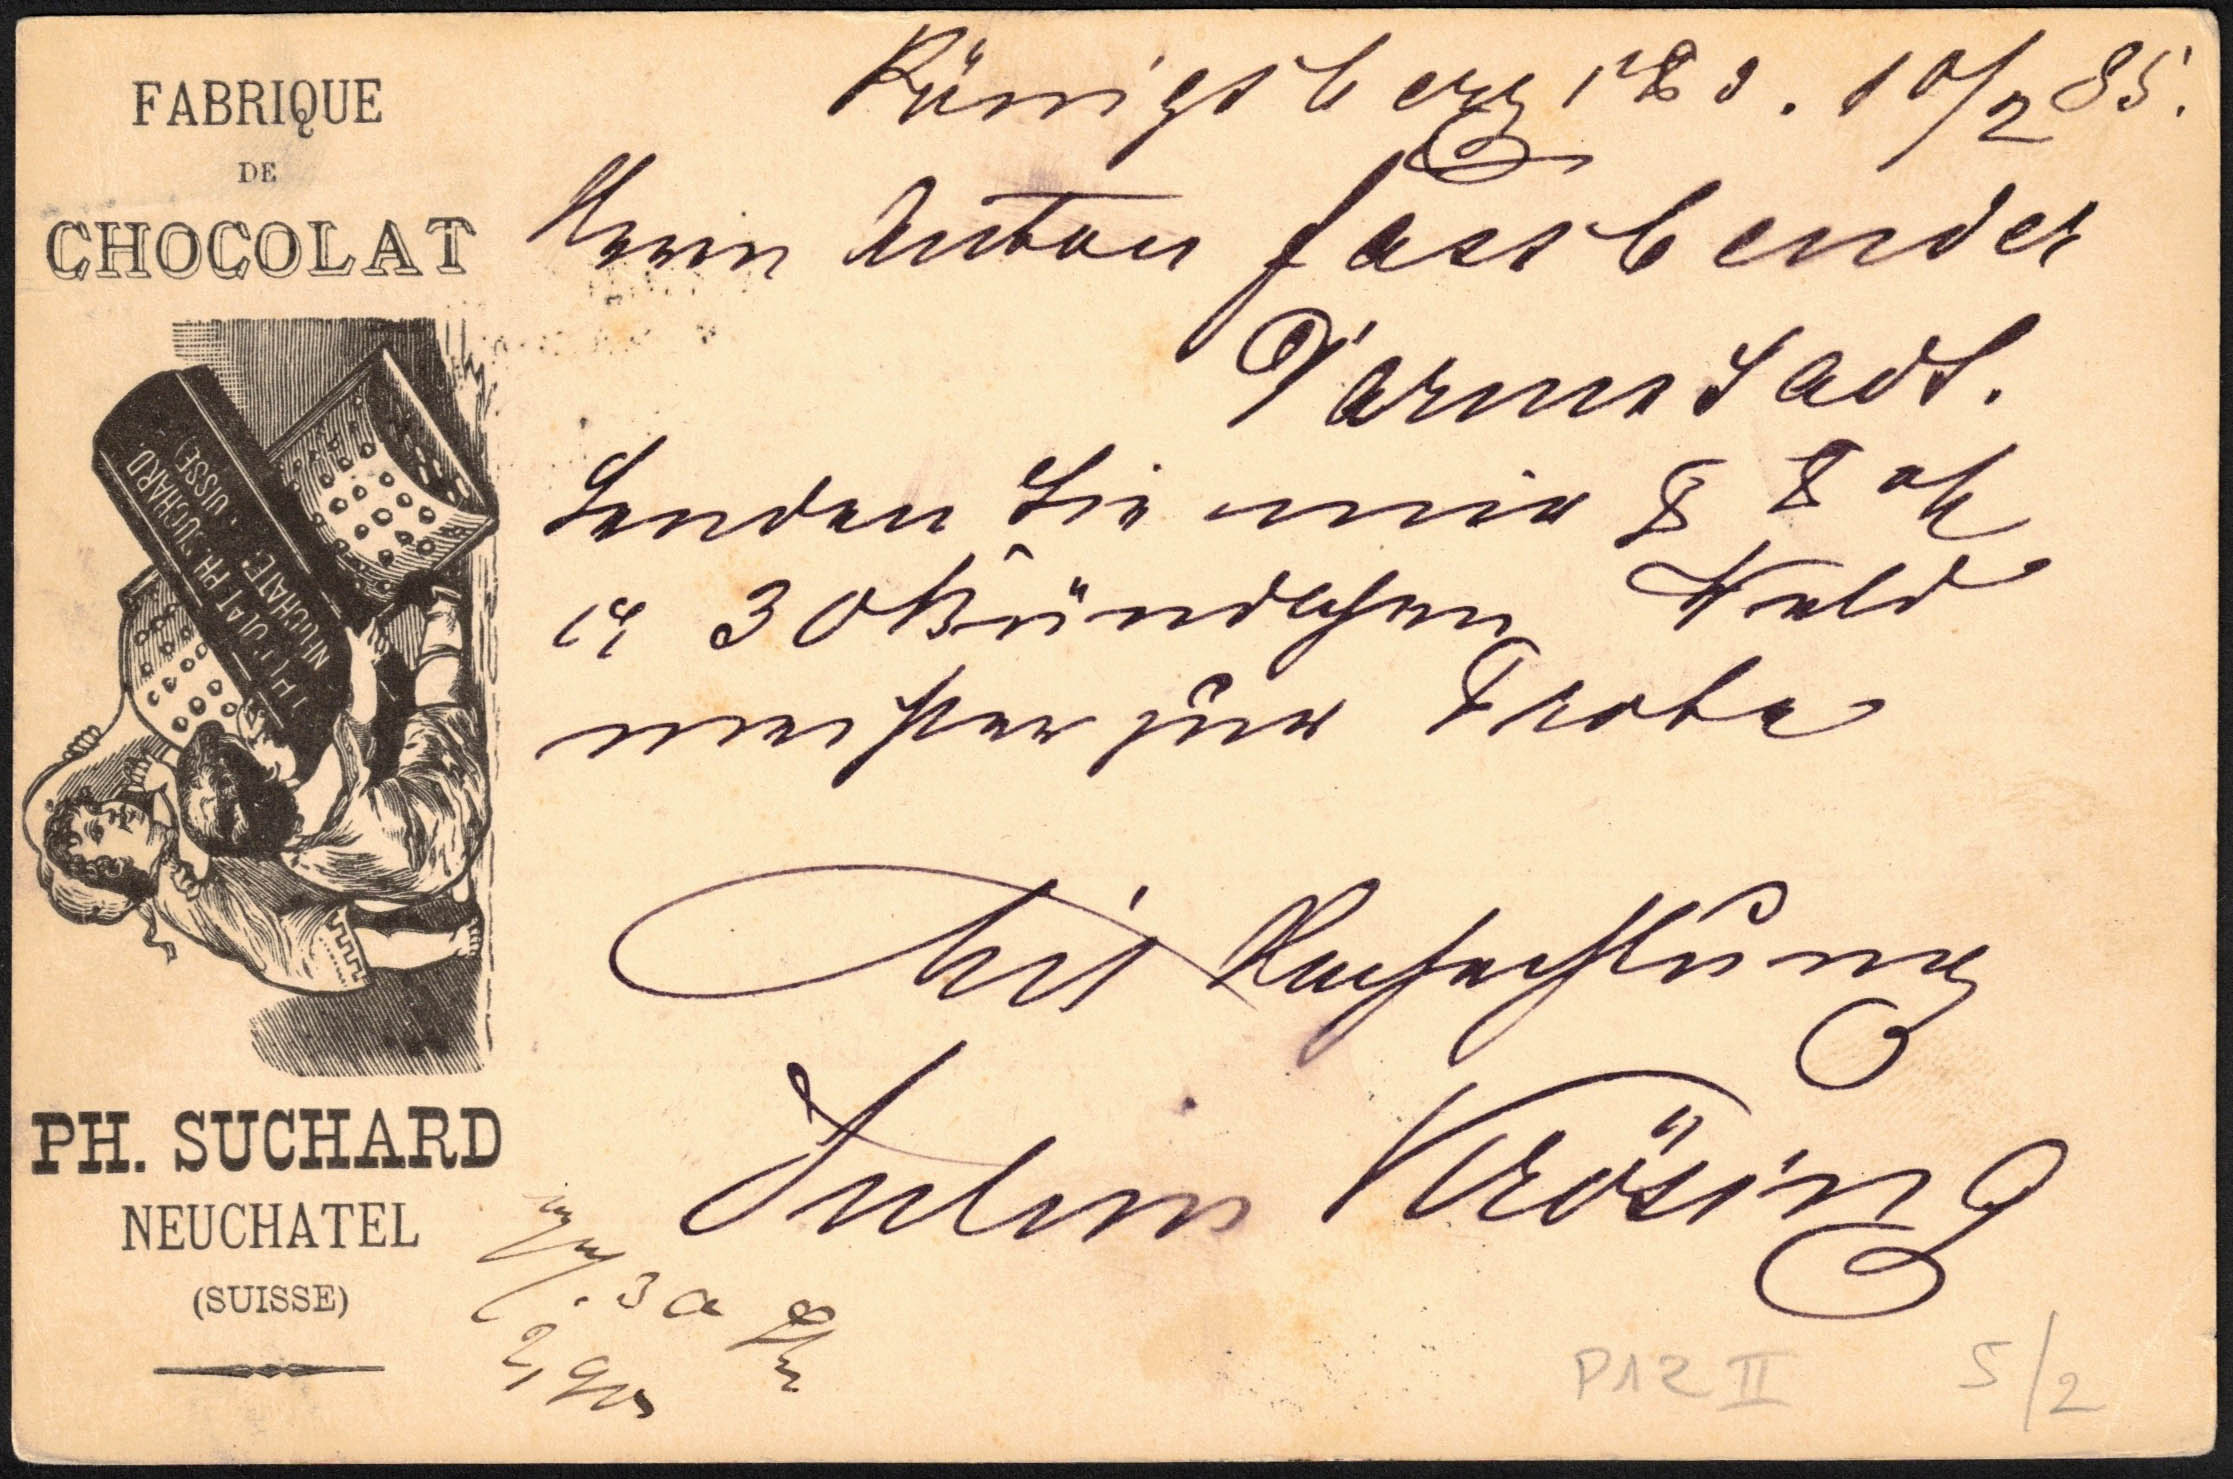 FABRIQUE
DE
CHOCOLAT
CHOCOLAT PH. SUCHARD.
NEUCHATEL (SUISSE)
PH. SUCHARD
NEUCHATEL
(SUISSE)
Königsberg 10/2 85.
Herrn Anton Fassbender
Darmstadt.
Senden Sie mir
30 Bündchen Wald
meister zur Probe
Mit Hochachtung
Julius Krösing
3 a
2,90
P12 II 5/2